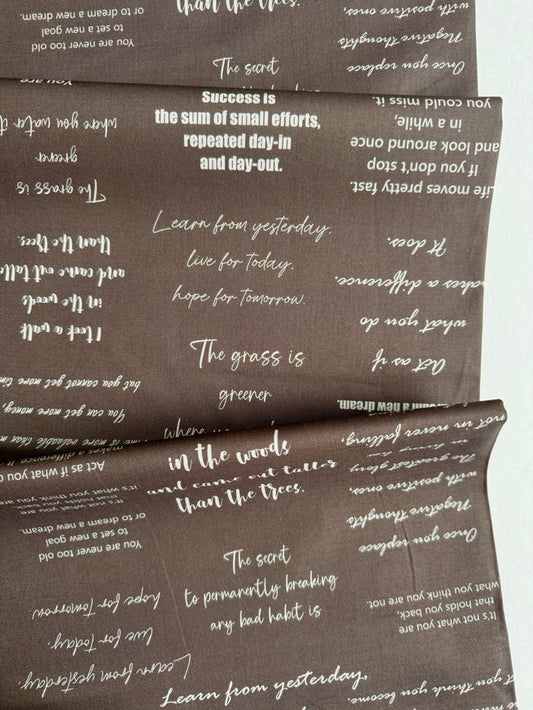 than the trees.
The secret
You are never too old
to set a new goal
or to dream a new dream.
Once you replace
Negative thoughts
with positive ones,
You are
Success is
the sum of small efforts,
repeated day-in
and day-out.
Learn from yesterday,
live for today,
hope for tomorrow.
The grass is
greener
where
The grass is
greener
where you water it
I took a walk
in the woods
and came out taller
than the trees.
more valuable than
You can get more money,
but you cannot get more time
Life moves pretty fast.
If you don't stop
and look around once
in a while,
you could miss it.
Act as if
what you do
makes a difference.
It does.
a new dream.
in the woods
and came out taller
than the trees.
Act as if what you
makes a difference
The secret
to permanently breaking
any bad habit is
Learn from yesterday,
You are never too old
to set a new goal
or to dream a new dream.
It's not what you are
that holds you back,
it's what you think you
Learn from yesterday,
live for today,
hope for tomorrow
The greatest glory
not in never falling,
Once you replace
Negative thoughts
with positive ones,
It's not what you are
that holds you back,
what you think you are not
you think you become.